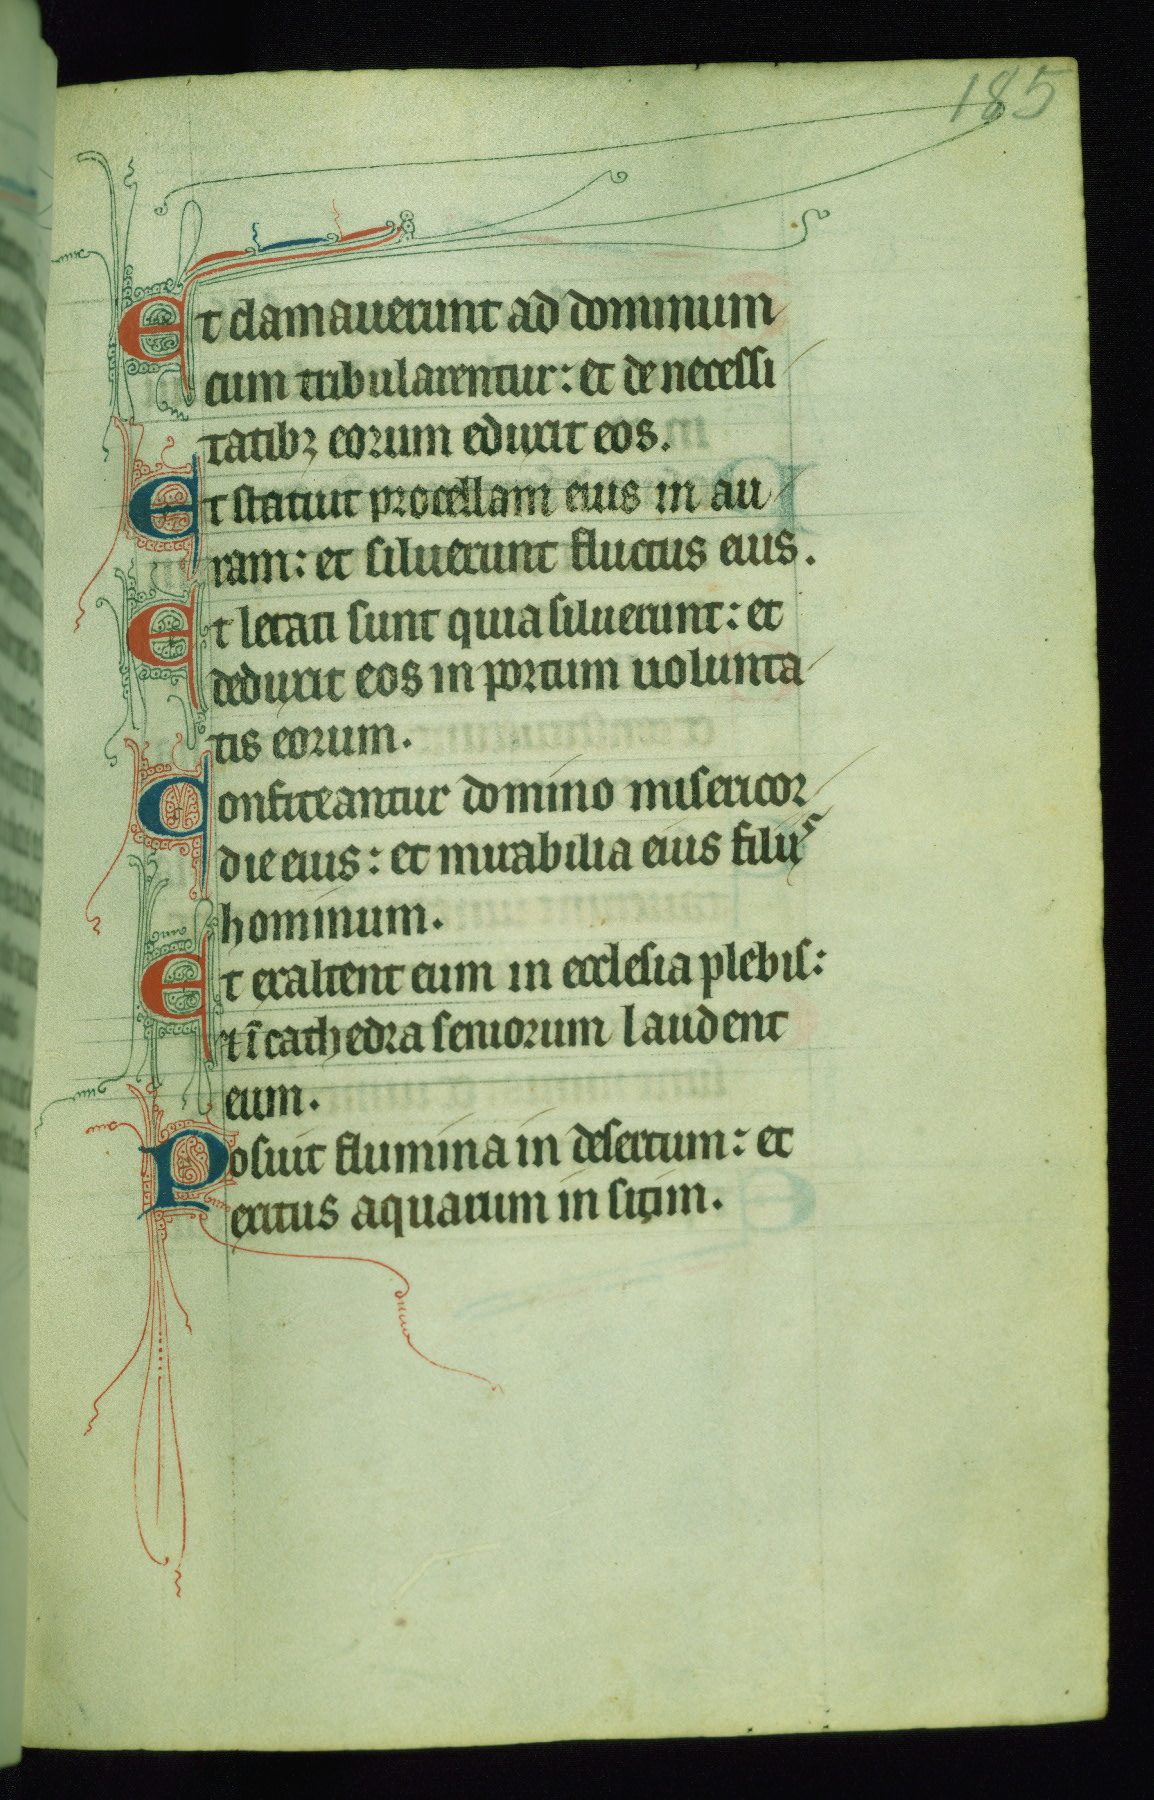 185
Et clamauerunt ad dominum
cum tribularentur: et de necessi
tatibꝫ eorum eduxit eos.
Et statuit procellam eius in au
ram: et siluerunt fluctus eius.
Et letati sunt quia siluerunt: et
deduxit eos in portum uolunta
tis eorum.
Confiteantur domino misericor
die eius: et mirabilia eius filiis
hominum.
Et exaltent eum in ecclesia plebis:
et ī cathedra seniorum laudent
eum.
Posuit flumina in desertum: et
exitus aquarum in sitim.